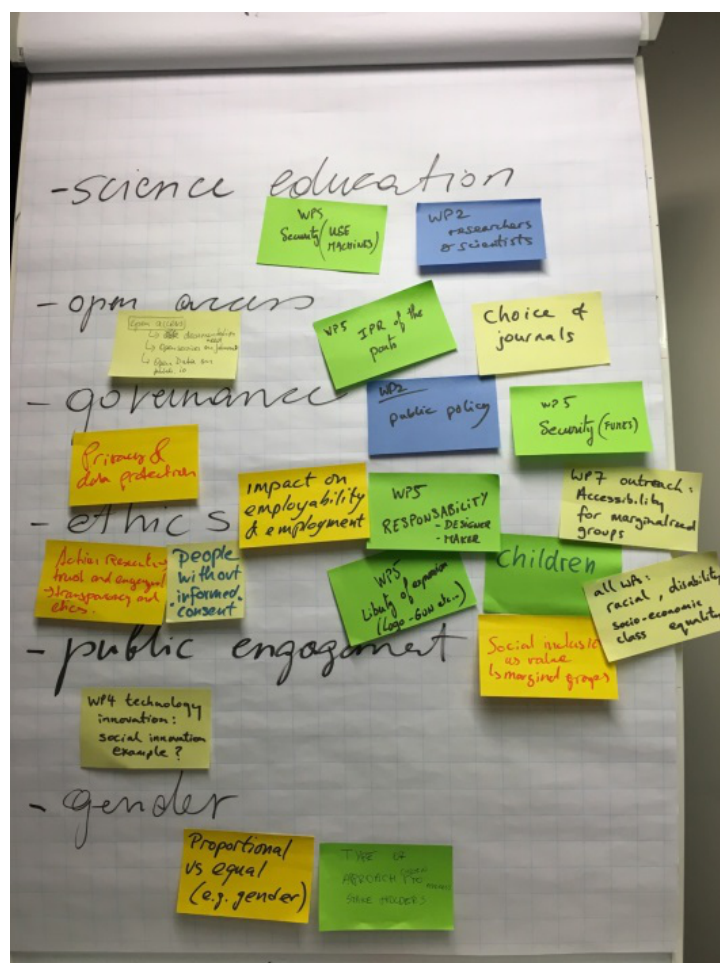 - science education
WP5
Security (USE
MACHINES)
WP2
researchers
& scientists
- open access
open access
documentation
Open Data
WP5 IPR of the
parts
Choice of
journals
- governance
WP2
public policy
WP5
Security (FUNES)
Privacy &
data protection
impact on
employability
& employment
WP5
RESPONSABILITY
- DESIGNER
- MAKER
WP7 outreach:
Accessibility
for marginalised
groups
- ethics
Action Research
trust and engagement
transparency and
ethics.
people
without
informed
consent
WP5
Liberty of expression
(Logo - GUN etc...)
Children
all WPs:
racial, disability
socio-economic
class equality
- public engagement
Social inclusion
as value
marginal groups
WP4 technology
innovation:
social innovation
example?
- gender
Proportional
vs equal
(e.g. gender)
TYPE OF
APPROACH TO
STAKE HOLDERS